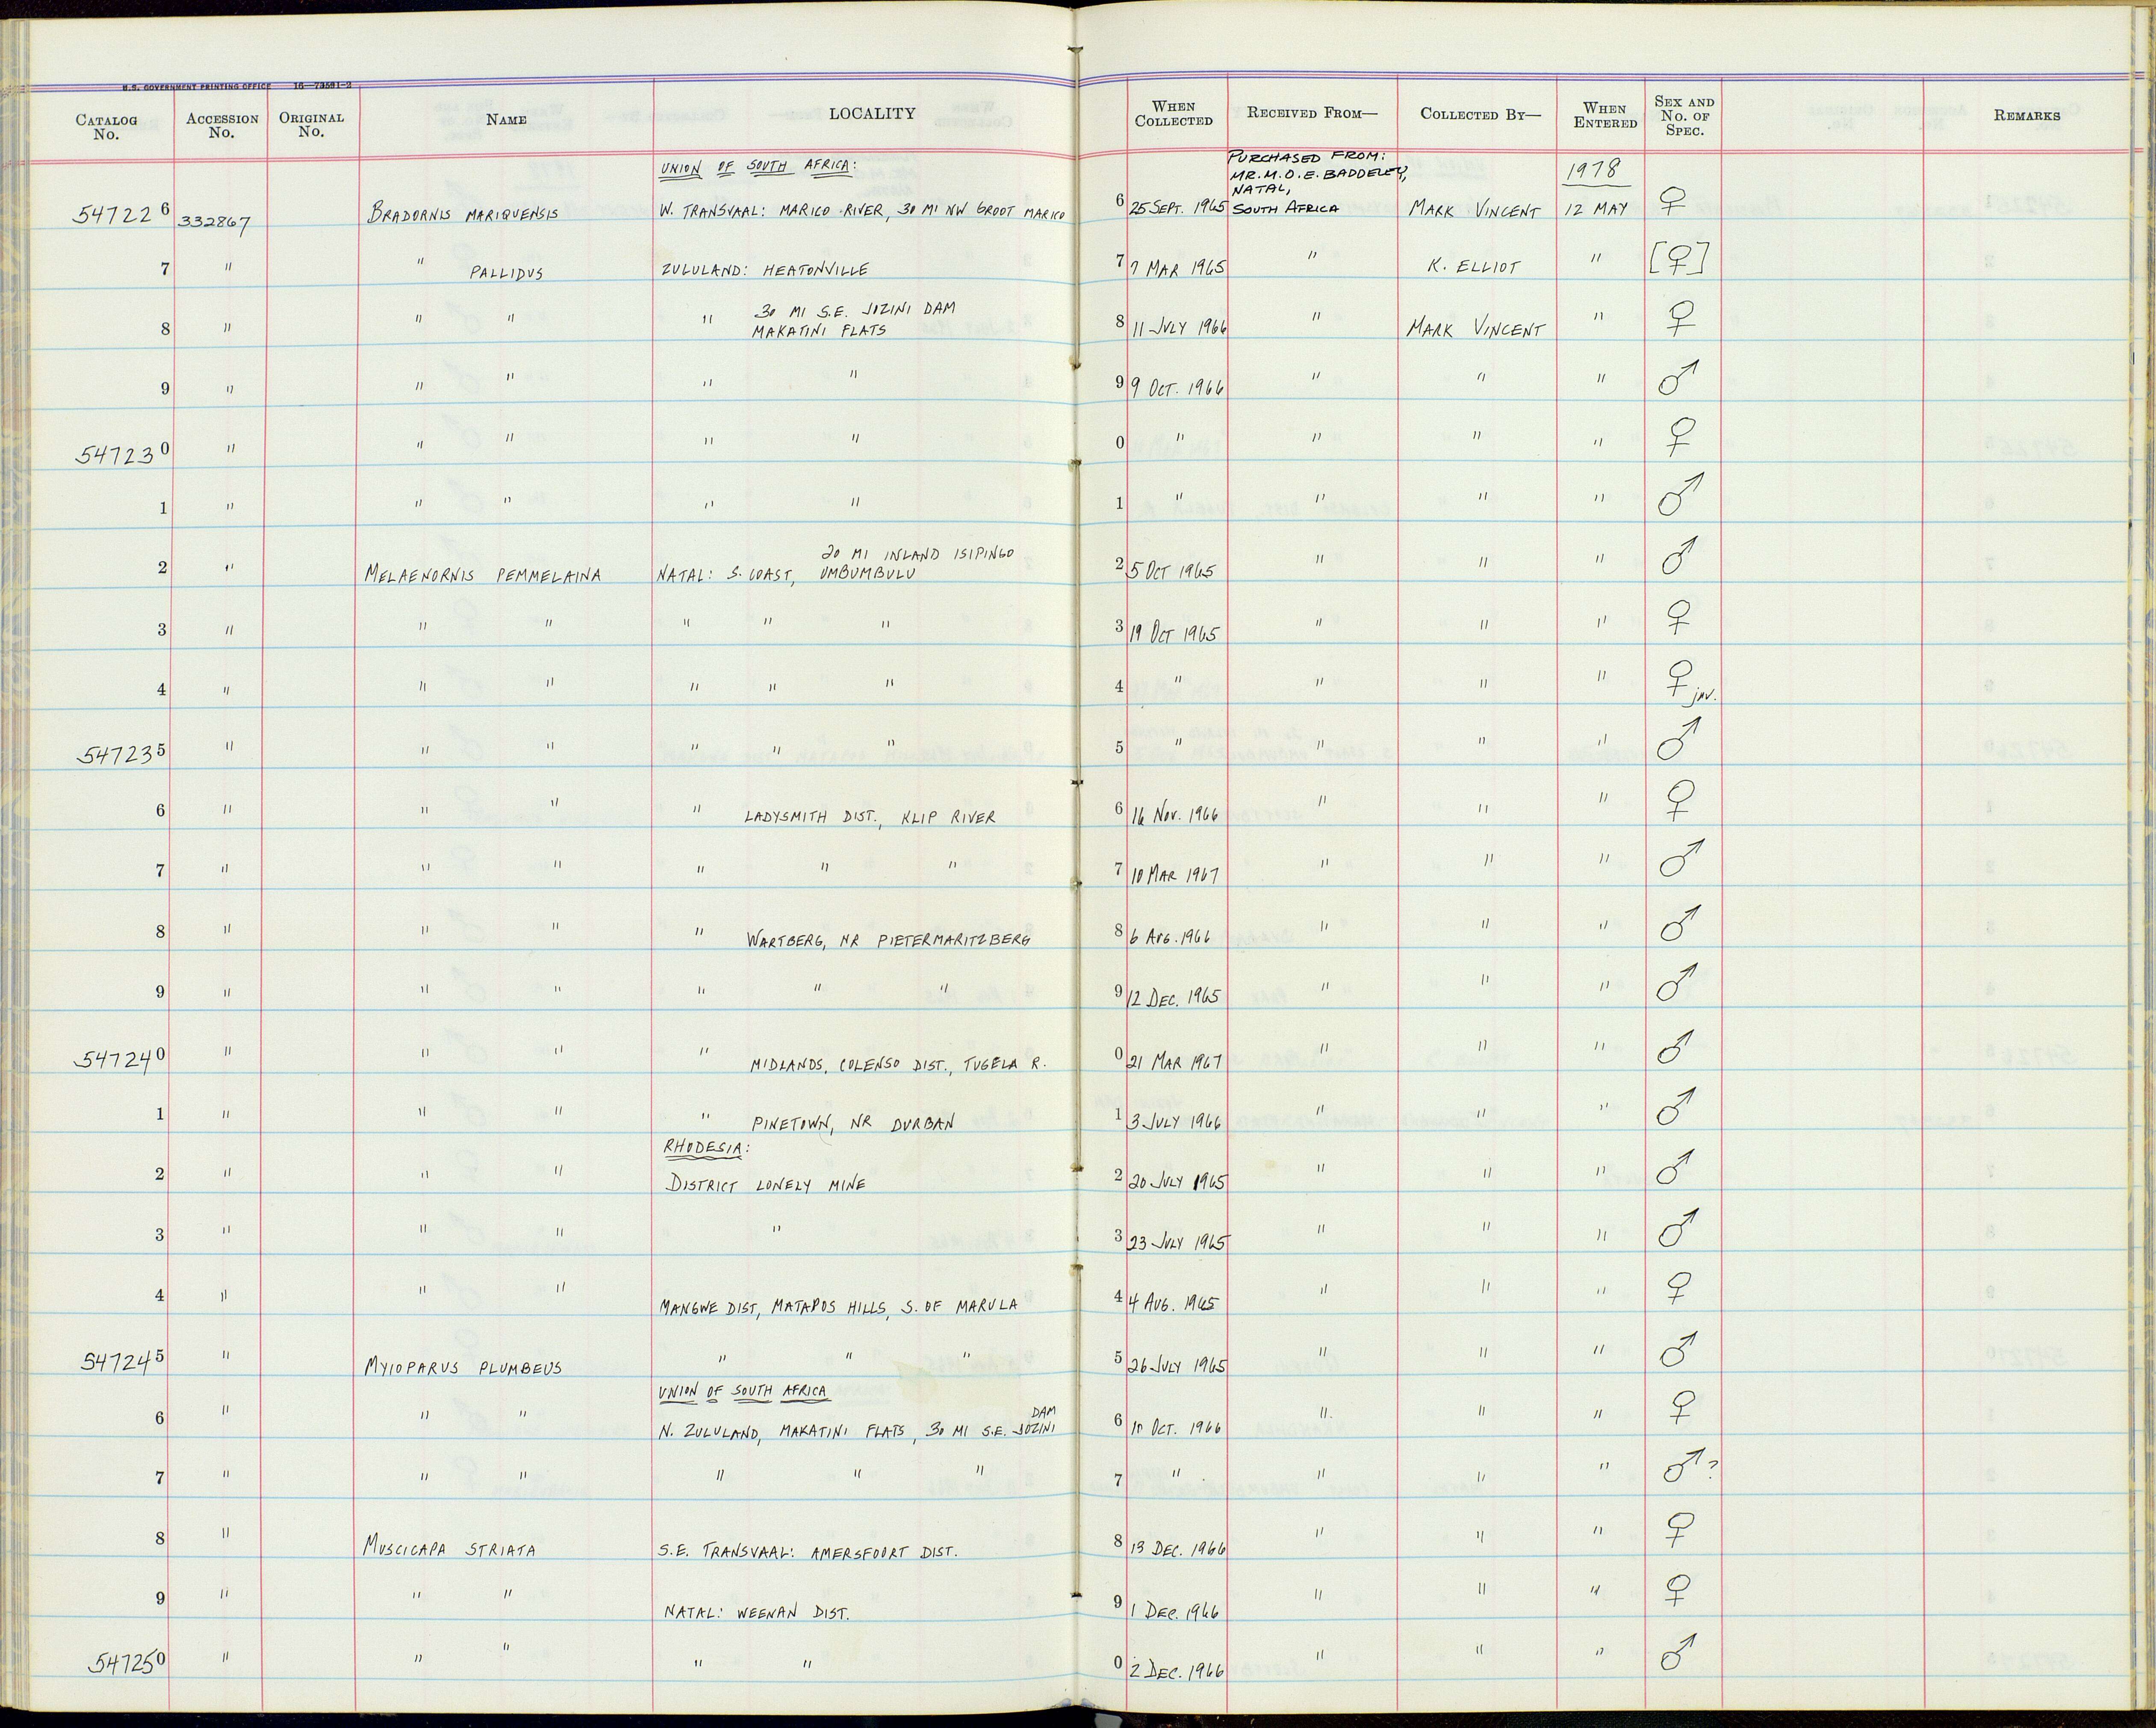 U.S. GOVERNMENT PRINTING OFFICE 16—73591-2
CATALOG No. ACCESSION No. ORIGINAL No. NAME LOCALITY WHEN COLLECTED RECEIVED FROM— COLLECTED BY— WHEN ENTERED SEX AND No. OF SPEC. REMARKS
UNION OF SOUTH AFRICA: PURCHASED FROM: MR. M.O.E. BADDELEY, NATAL, SOUTH AFRICA 1978
547226 332867 BRADORNIS MARIQUENSIS W. TRANSVAAL: MARICO RIVER, 30 MI NW GROOT MARICO 6 25 SEPT. 1965 MARK VINCENT 12 MAY ♀
7 " " PALLIDUS ZULULAND: HEATONVILLE 7 7 MAR 1965 " K. ELLIOT " [♀]
8 " " " " 30 MI S.E. JOZINI DAM MAKATINI FLATS 8 11 JULY 1966 " MARK VINCENT " ♀
9 " " " " " 9 9 OCT. 1966 " " " ♂
547230 " " " " " 0 " " " " ♀
1 " " " " " 1 " " " " ♂
2 " MELAENORNIS PEMMELAINA NATAL: S. COAST, 20 MI INLAND ISIPINGO UMBUMBULU 2 5 OCT 1965 " " " ♂
3 " " " " " " 3 19 OCT 1965 " " " ♀
4 " " " " " " 4 " " " " ♀ juv.
547235 " " " " " " 5 " " " " ♂
6 " " " " LADYSMITH DIST., KLIP RIVER 6 16 NOV. 1966 " " " ♀
7 " " " " " " 7 10 MAR 1967 " " " ♂
8 " " " " WARTBERG, NR PIETERMARITZBERG 8 6 AUG. 1966 " " " ♂
9 " " " " " " 9 12 DEC. 1965 " " " ♂
547240 " " " " MIDLANDS, COLENSO DIST., TUGELA R. 0 21 MAR 1967 " " " ♂
1 " " " " PINETOWN, NR DURBAN 1 3 JULY 1966 " " " ♂
RHODESIA:
2 " " " DISTRICT LONELY MINE 2 20 JULY 1965 " " " ♂
3 " " " " 3 23 JULY 1965 " " " ♂
4 " " " MANGWE DIST, MATAPOS HILLS, S. OF MARULA 4 4 AUG. 1965 " " " ♀
547245 " MYIOPARUS PLUMBEUS " " " 5 26 JULY 1965 " " " ♂
UNION OF SOUTH AFRICA
6 " " " N. ZULULAND, MAKATINI FLATS, 30 MI S.E. JOZINI DAM 6 OCT. 1966 " " " ♀
7 " " " " " " 7 " " " " ♂?
8 " MUSCICAPA STRIATA S.E. TRANSVAAL: AMERSFOORT DIST. 8 13 DEC. 1966 " " " ♀
9 " " " NATAL: WEENAN DIST. 9 1 DEC. 1966 " " " ♀
547250 " " " " " 0 2 DEC. 1966 " " " ♂